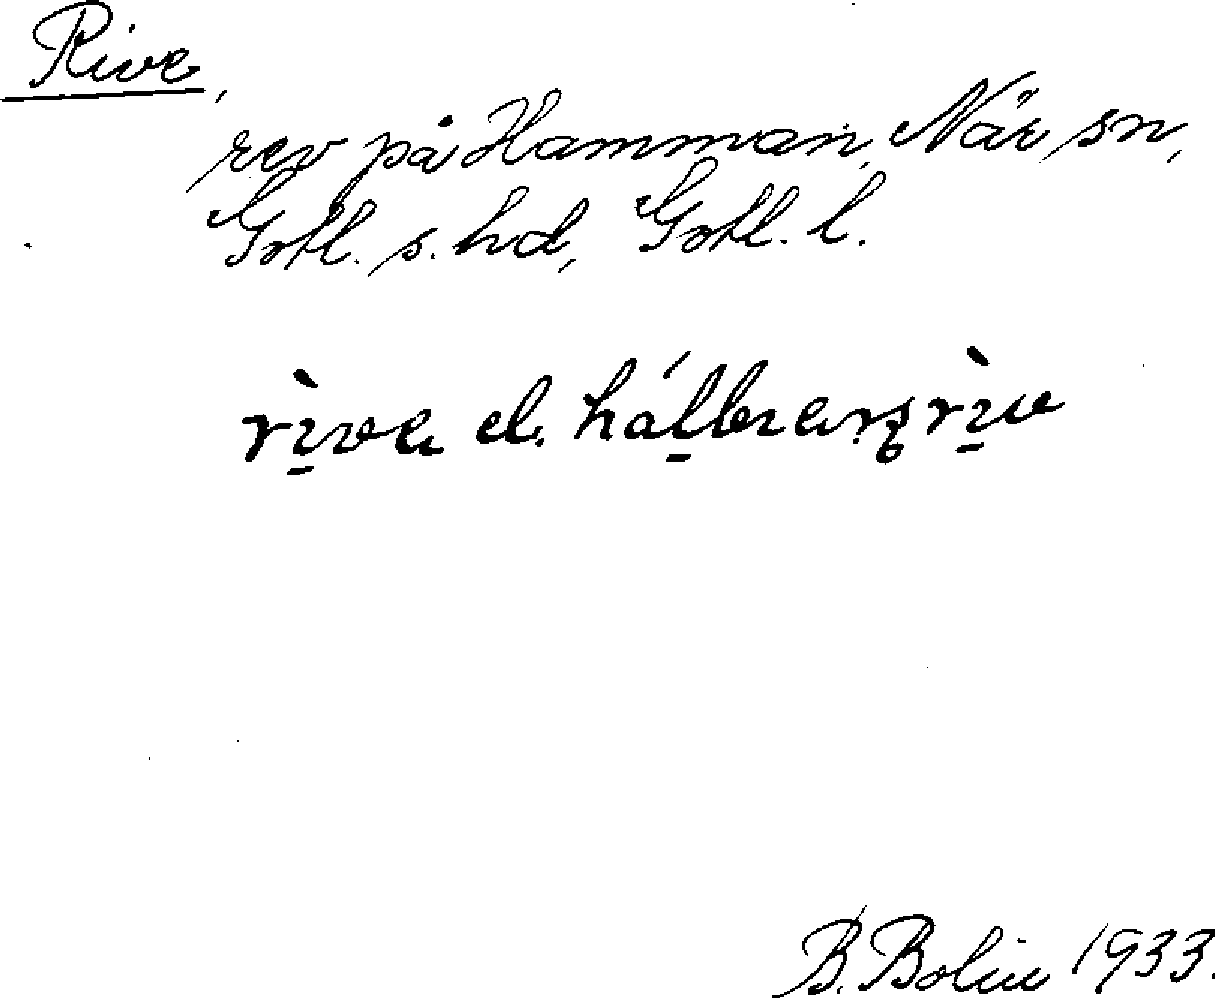 Rive,
rev på Hamman, När sn,
Gotl. s. hd, Gotl. l.
rìva el. hálbɪarsrìv
B. Bolin 1933.